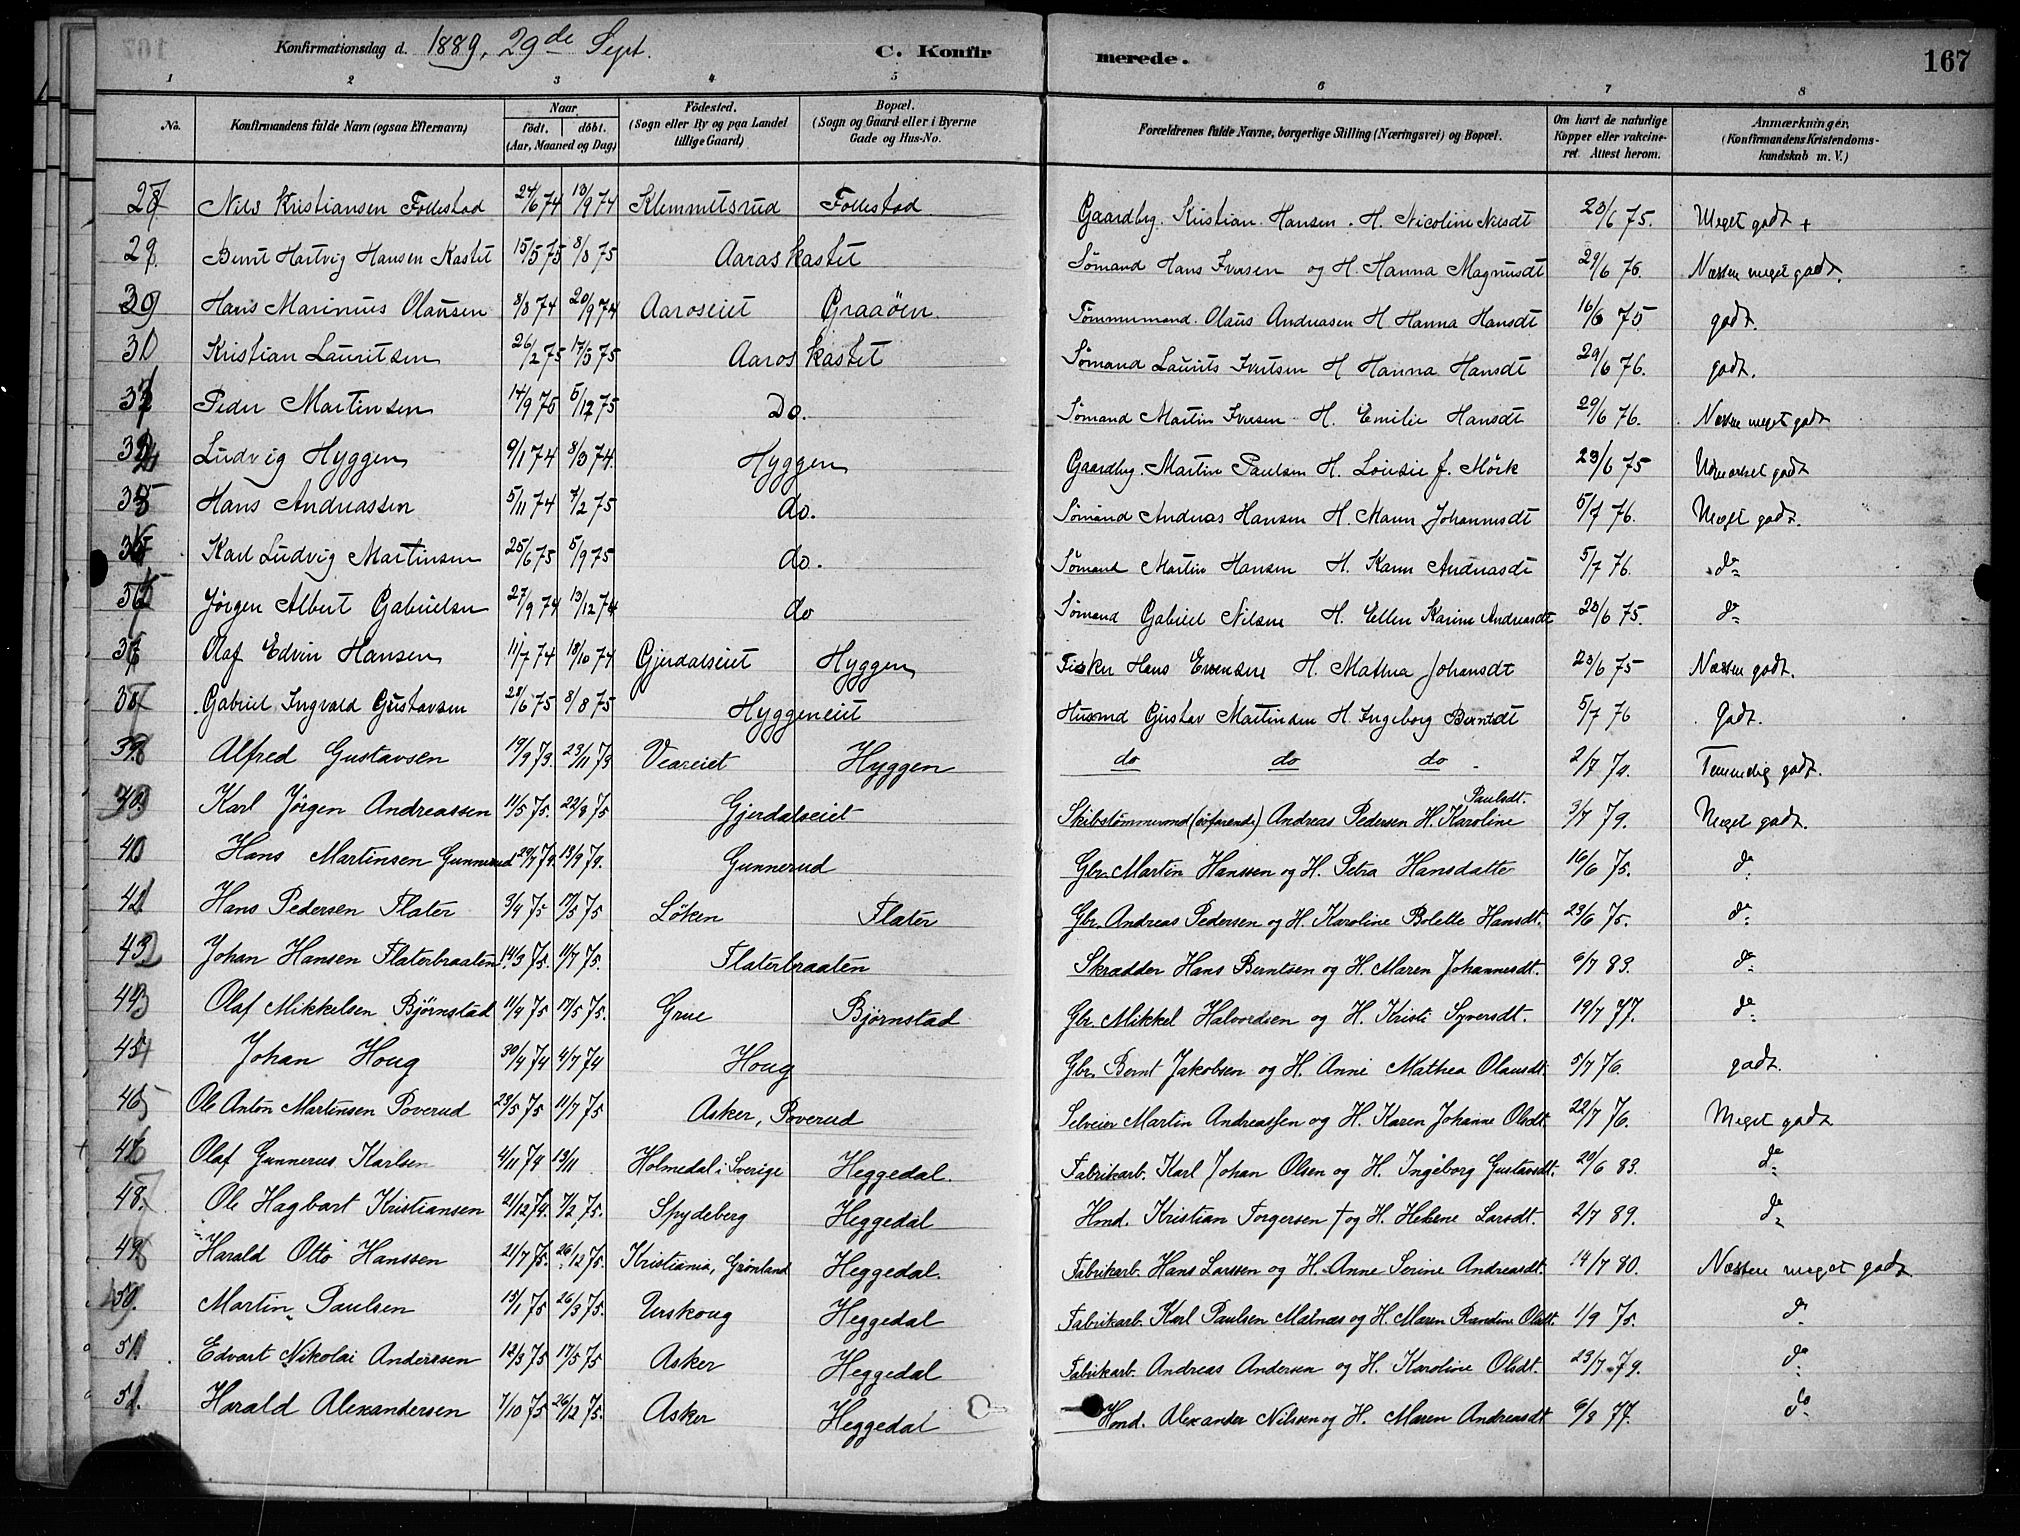 Konfirmationsdag d. 1889, 29de Sept. C. Konfirmerede. 167
1 2 3 4 5 6 7 8
No. Konfirmandens fulde Navn (ogsaa Efternavn) Naar født. døbt. (Aar, Maaned og Dag) Födested. (Sogn eller By og paa Landet tillige Gaard) Bopæl. (Sogn og Gaard eller i Byerne Gade og Hus-No. Forældrenes fulde Navne, borgerlige Stilling (Næringsvei) og Bopæl. Om havt de naturlige Kopper eller vakcineret. Attest herom. Anmærkninger. (Konfirmandens Kristendomskundskab m. V.)
Nils Kristiansen Follestad 24/6 74 13/9 74 Klemmetsrud Follestad Gaardbg. Kristian Hansen. H. Nicoline Nilsdt 23/6 75. Meget godt +
29. Bernt Hartvig Hansen Kastet 15/5 75 8/8 75 Aaraskastet Sømand Hans Iversen og H. Hanna Magnusdt 29/6 76. Næsten meget godt.
30 Hans Marinius Olausen 8/8 74 20/9 74 Aaroseiet Graaöen Tømmermand. Olaus Andreasen H Hanna Hansdt 16/6 75 godt.
31 Kristian Lauritsen 26/2 75 17/5 75 Aaroskastet Sømand Laurits Ivertsen H Hanna Hansdt 29/6 76. godt.
Peder Martinsen 14/9 75 5/12 75 Do. Sømand Martin Iversen H. Emilie Hansdt 29/6 76. Næsten meget godt
Ludvig Hyggen 9/1 74 8/3 74. Hyggen Gaardbg. Martin Paulsen H. Lovise f. Mörk 23/6 75 Udmærket godt
Hans Andreassen 5/11 74 7/2 75 do. Sømand Andreas Hansen H. Maren Johannesdt 5/7 76. Meget godt.
Karl Ludvig Martinsen 25/6 75 5/9 75 do. Sømand Martin Hansen H. Karen Andreasdt 5/7 76. do
Jörgen Albert Gabrielsen 27/9 74 13/12 74 do Sømand Gabriel Nilsen H. Ellen Karine Andreasdt 23/6 75. do
Olaf Edvin Hansen 11/7 74 18/10 74 Gjerdalseiet Hyggen Fisker Hans Evensen H. Mathea Johansdt 23/6 75 Næsten godt.
Gabriel Ingvald Gustavsen 28/6 75 8/8 75 Hyggeneiet Husmd Gustav Martinsen H. Ingeborg Berntdt 5/7 76 Godt.
39. Alfred Gustavsen 19/9 73. 23/11 73 Veareiet Hyggen do do do 2/7 74. Temmelig godt.
40. Karl Jörgen Andreassen 11/5 75. 22/8 75 Gjerdalseiet Skibstømmermd (søfarende) Andreas Pedersen H. Karoline Paulsdt. 3/7 79. Meget godt.
Hans Martinsen Gunnerud 29/7 74. 13/9 74. Gunnerud Gbr. Martin Hanssen og H. Petra Hansdatter 16/6 75. do
42 Hans Pedersen Flater 3/4 75 17/5 75 Löken Flater Gbr. Andreas Pedersen og H. Karoline Bolette Hansdt. 23/6 75. do
43 Johan Hansen Flaterbraaten 14/3 75. 11/7 75. Flaterbraaten Skrædder Hans Berntsen og H. Maren Johannesdt. 6/7 83. do
44 Olaf Mikkelsen Björnstad 11/4 75 17/5 75. Grue Björnstad Gbr. Mikkel Halvordsen og H. Kristi Syversdt. 19/7 77. do
45 Johan Houg 30/4 74 4/7 74 Houg Gbr. Bernt Jakobsen og H. Anne Mathea Olausdt. 5/7 76. godt.
46 Ole Anton Martinsen Poverud 23/5 75 11/7 75 Asker, Poverud Selveier Martin Andreassen og H. Karen Johanne Olsdt. 22/7 76. Meget godt
Olaf Gunnerus Karlsen 4/11 74 13/11 Holmedal i Sverige Heggedal. Fabrikarb. Karl Johan Olsen og H. Ingeborg Gustavsdt. 20/6 83. do
48. Ole Hagbart Kristiansen 21/12 74. 7/2 75. Spydeberg Heggedal Hmd. Kristian Torgersen † og H. Helene Larsdt. 2/7 89. do
49 Harald Otto Hanssen 21/7 75. 26/12 75. Kristiania, Grönland Heggedal. Fabrikarb. Hans Larssen og H. Anne Serine Andreasdt. 14/7 80. Næsten meget godt
50. Martin Paulsen 15/1 75 26/3 75. Urskoug Heggedal Fabrikarb. Karl Paulsen Matnæs og H. Maren Randine Olsdt. 1/9 75. do
51 Edvart Nikolai Anderssen 12/3 75 17/5 75 Asker Heggedal Fabrikarb. Andreas Andersen og H. Karoline Olsdt. 23/7 79. do
Harald Alexandersen 7/10 75 26/12 75. Asker Heggedal Hmd. Alexander Nilsen og H. Maren Andreasdt 6/8 77. do